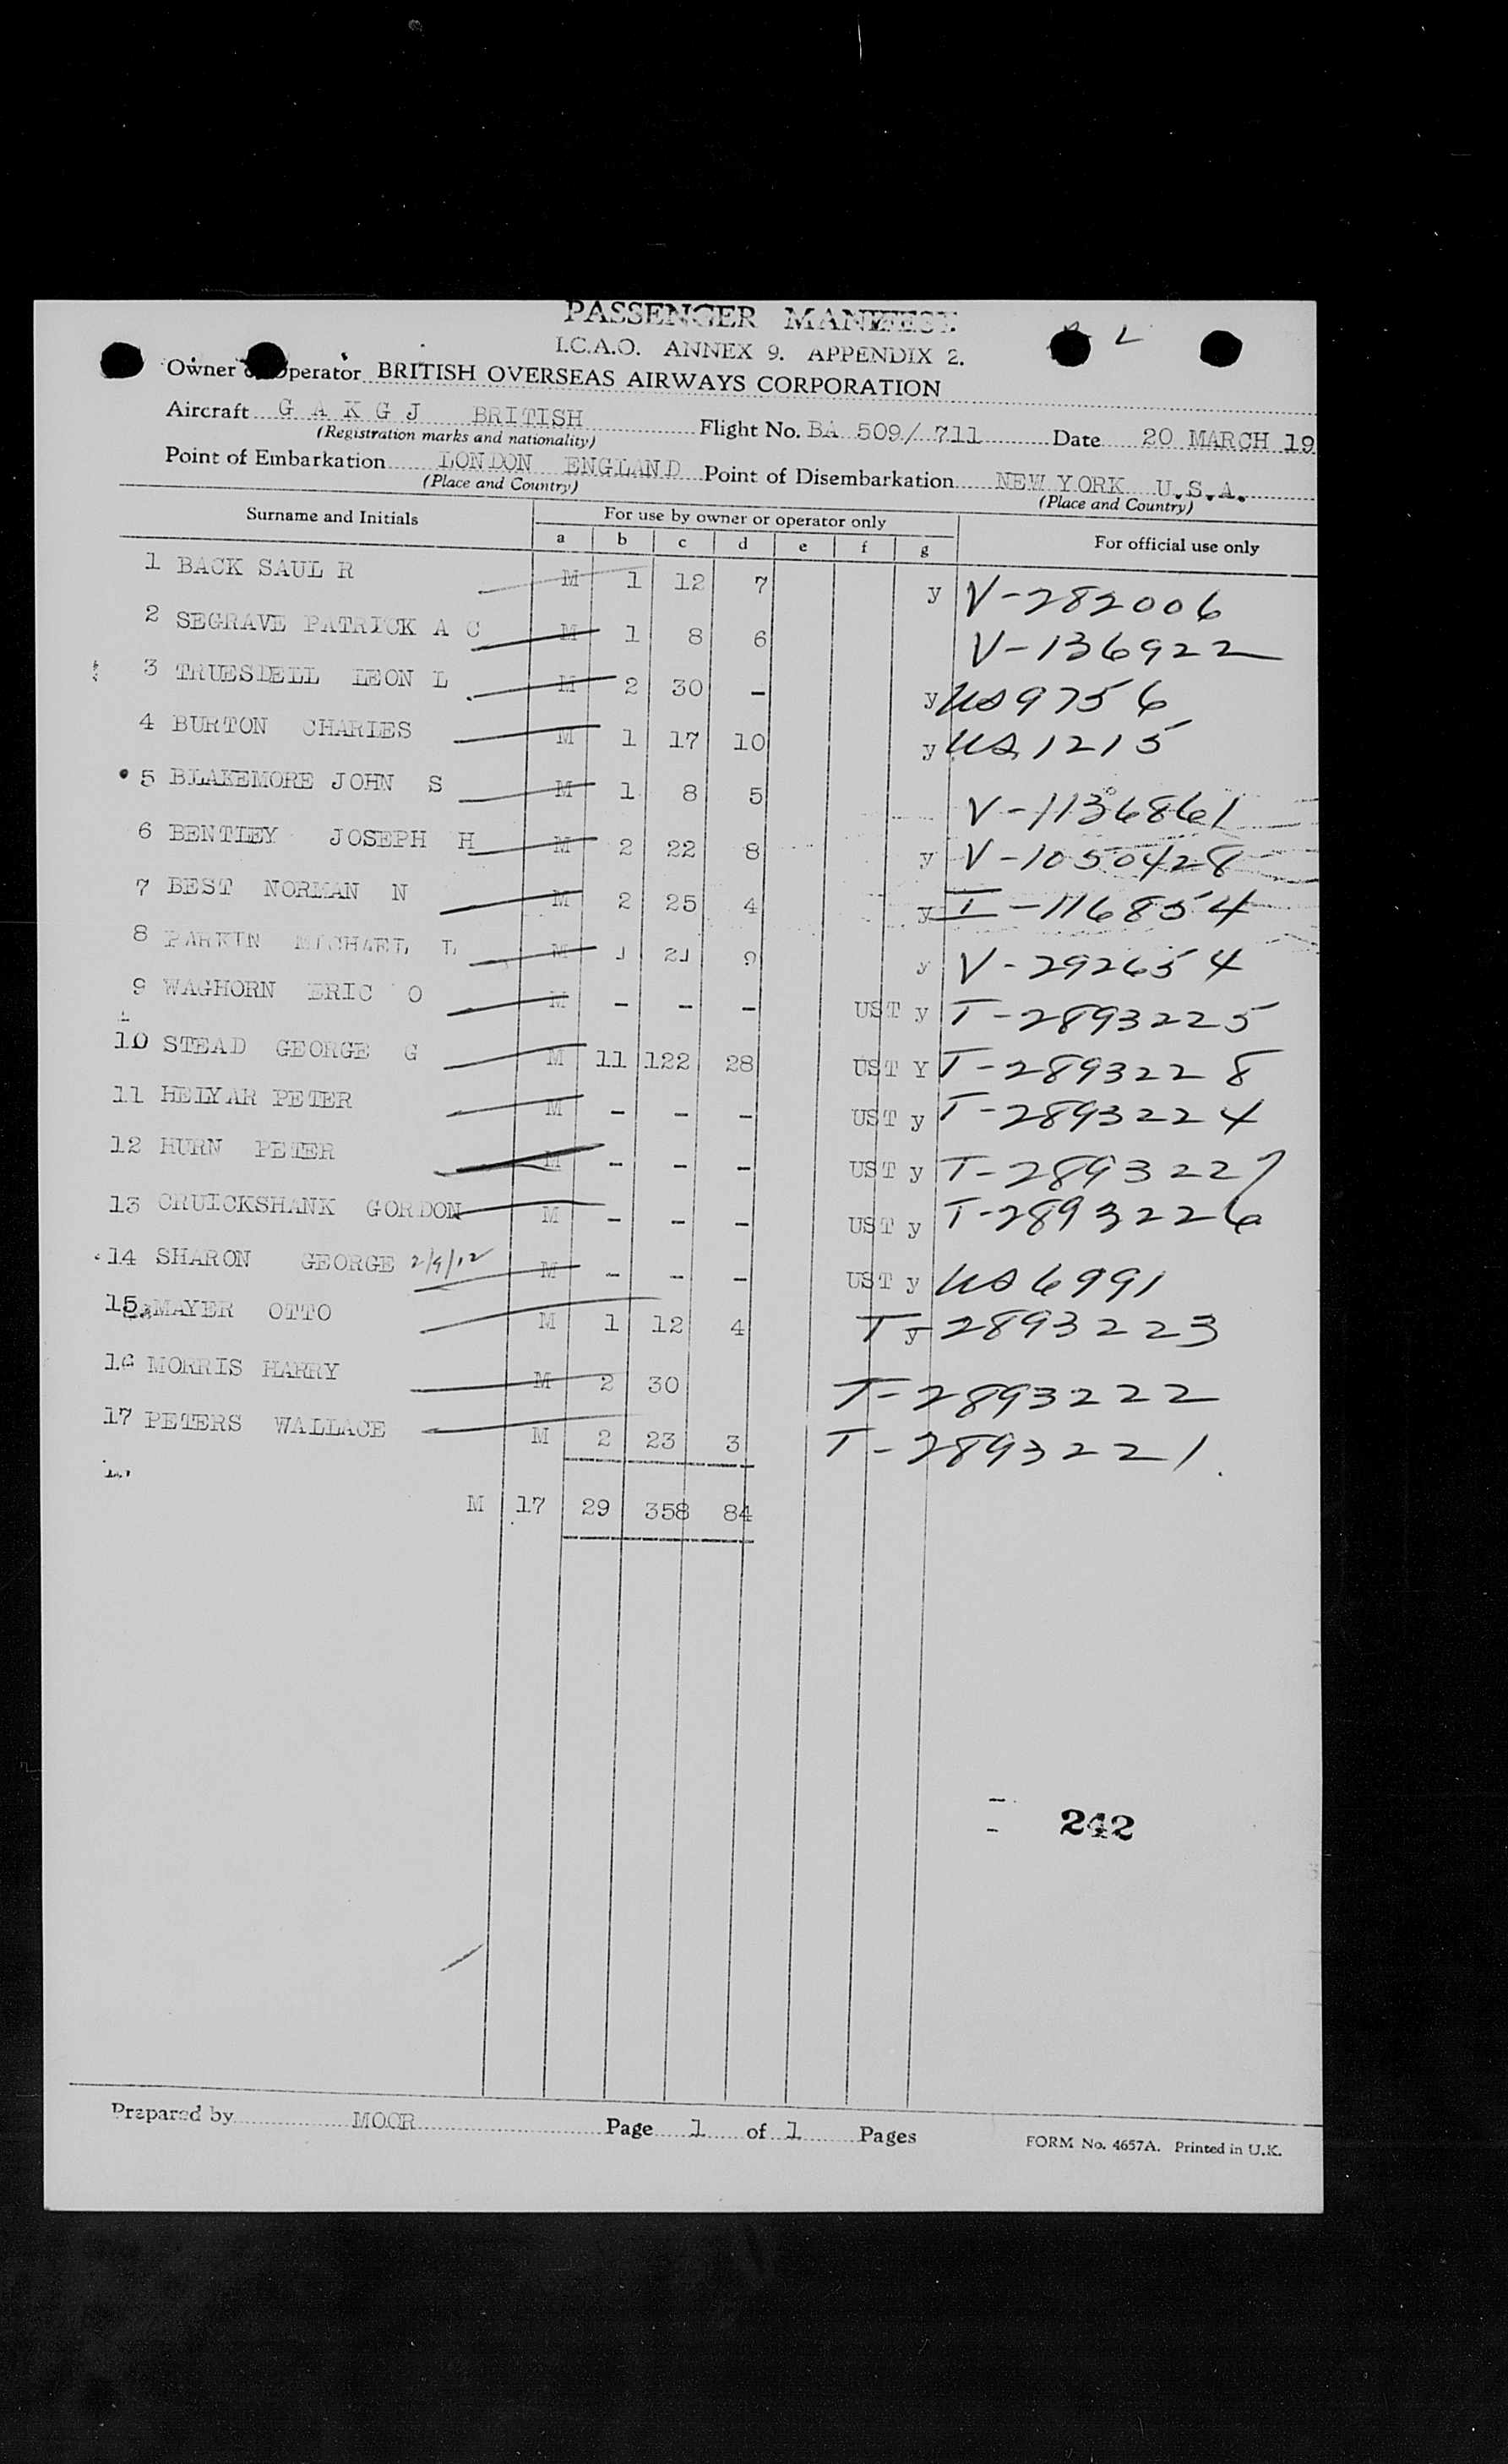 PASSENGER MANIFEST
I.C.A.O. ANNEX 9. APPENDIX 2.
L
Owner Operator BRITISH OVERSEAS AIRWAYS CORPORATION
Aircraft G A K G J BRITISH Flight No. BA 509/ 711 Date 20 MARCH 19
(Registration marks and nationality)
Point of Embarkation LONDON ENGLAND Point of Disembarkation NEW YORK U.S.A.
(Place and Country) (Place and Country)
Surname and Initials For use by owner or operator only For official use only
a b c d e f g
1 BACK SAUL R M 1 12 7 y V-282006
2 SEGRAVE PATRICK A C M 1 8 6 V-136922
3 TRUESDELL LEON L M 2 30 - y US 9756
4 BURTON CHARLES M 1 17 10 y US 1215
5 BLAKEMORE JOHN S M 1 8 5 V-1136861
6 BENTLEY JOSEPH H M 2 22 8 y V-1050428
7 BEST NORMAN N M 2 25 4 y I-116854
8 PARKIN MICHAEL L M 1 21 9 y V-292654
9 WAGHORN ERIC O M - - - UST y T-2893225
10 STEAD GEORGE G M 11 122 28 UST Y T-2893228
11 HELYAR PETER M - - - UST y T-2893224
12 HURN PETER M - - - UST y T-2893227
13 CRUICKSHANK GORDON M - - - UST y T-2893226
14 SHARON GEORGE 2/9/12 M - - - UST y US 6991
15 MAYER OTTO M 1 12 4 y T-2893223
16 MORRIS HARRY M 2 30 T-2893222
17 PETERS WALLACE M 2 23 3 T-2893221.
M 17 29 358 84
242
Prepared by MOOR Page 1 of 1 Pages
FORM No. 4657A. Printed in U.K.